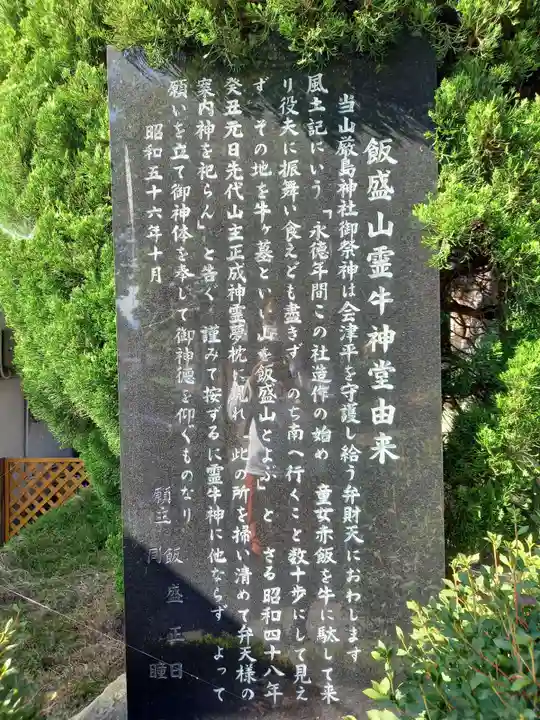 飯盛山霊牛神堂由来
当山厳島神社御祭神は会津平を守護し給う弁財天におわします
風土記にいう 「永徳年間この社造作の始め 童女赤飯を牛に駄して来
り役夫に振舞い食えども盡きず のち南へ行くこと数十歩にして見え
ず その地を牛ヶ墓といい山を飯盛山とよぶ」と さる昭和四十八年
癸丑元日先代山主正成神霊夢枕に現れ「此の所を掃い清めて弁天様の
案内神を祀らん」と告く 謹みて按ずるに霊牛神に他ならず よって
願いを立て御神体を奉じて御神徳を仰ぐものなり
昭和五十六年十月
願主 飯盛正日
同 瞳